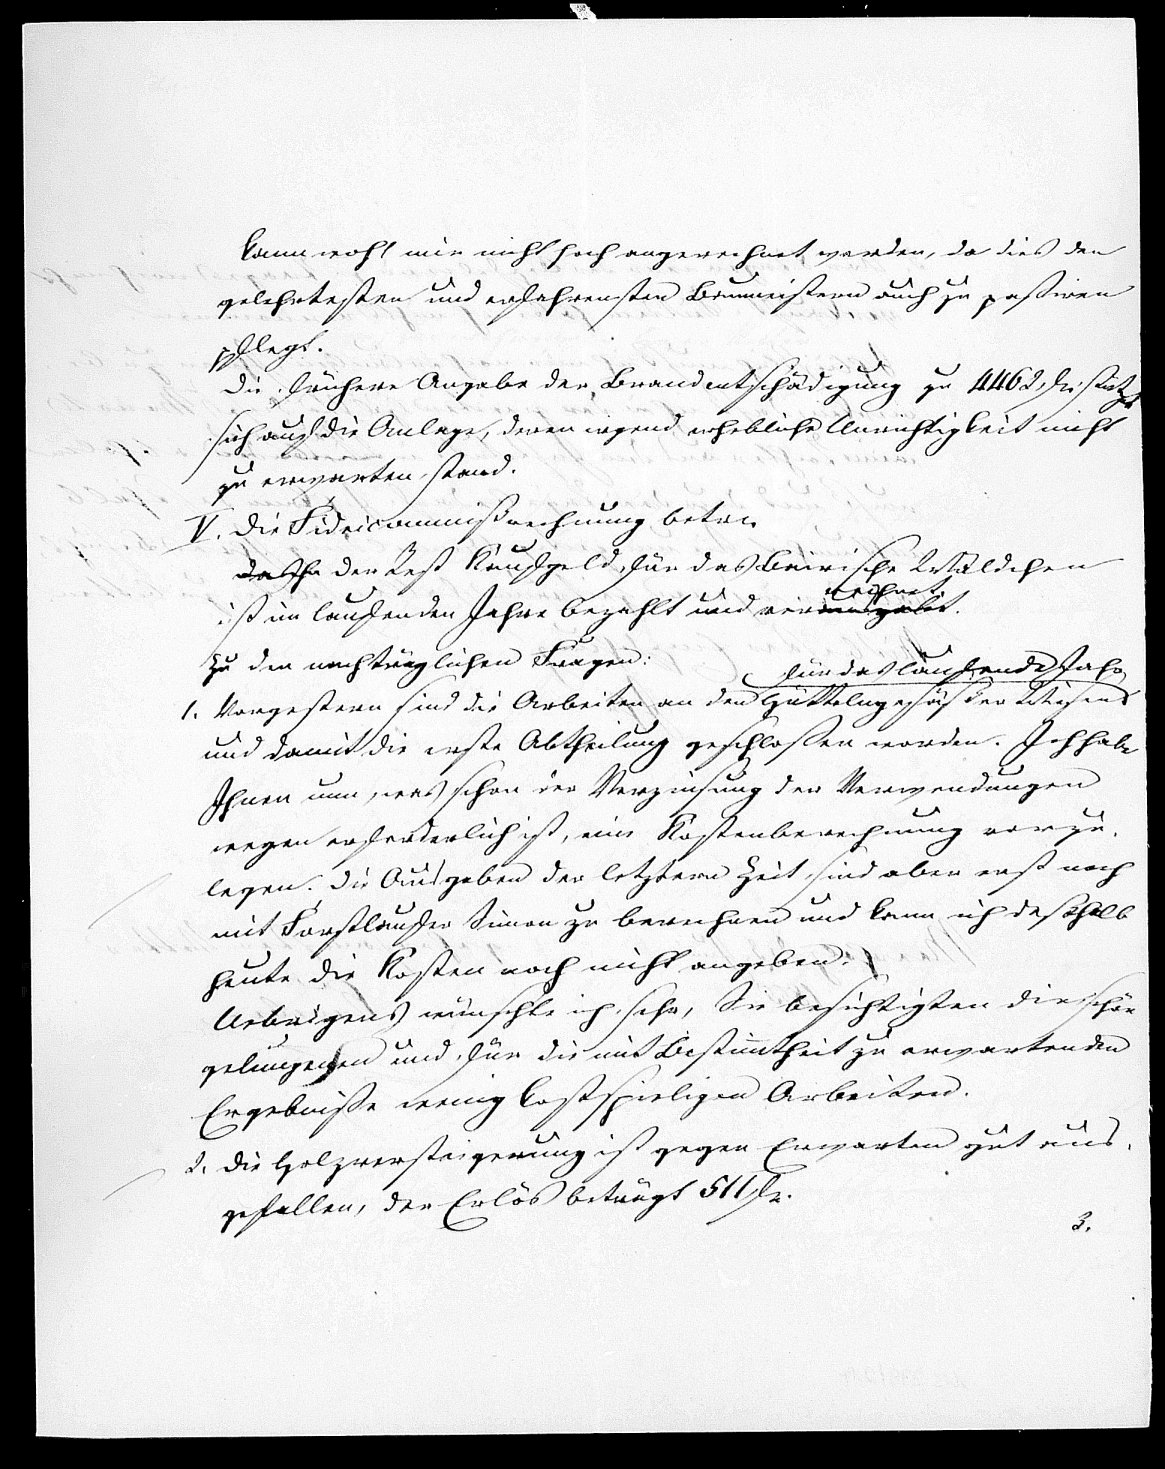 kann wohl mir nicht hoch angerechnet werden, da dies den
gelehrtesten und erfahrensten Baumeistern auch zu passiren
pflegt.
Die frühere Angabe der Brandentschädigung zu 4462 fr. stützt
sich auf die Anlage, deren irgend erhebliche Unrichtigkeit nicht
zu erwarten stand.
V. Die Fideicommißrechnung betr.
der Rest Kaufgeld für das Beirische Wäldchen
rechnet
ist im laufenden Jahre bezahlt und ver .
Zu den nachträglichen Fragen:
für das laufende Jahr
1. Vorgestern sind die Arbeiten an den Wiesens
und damit die erste Abtheilung geschlossen worden. Ich habe
Ihnen nun, was schon der Verzinsung der Verwendungen
wegen erforderlich ist, eine Kostenberechnung vorzu-
legen. Die Ausgaben der letztern Zeit sind aber erst noch
mit Forstläufer Simon zu berechnen und kann ich deßhalb
heute die Kosten noch nicht angeben.
Uebrigens wünschte ich sehr, Sie besichtigten die schön
gelungenen und für die mit Bestimtheit zu erwartenden
Ergebnisse wenig kostspieligen Arbeiten.
2. Die Holzversteigerung ist gegen Erwarten gut aus-
gefallen, der Erlös beträgt 511 fr.
3.